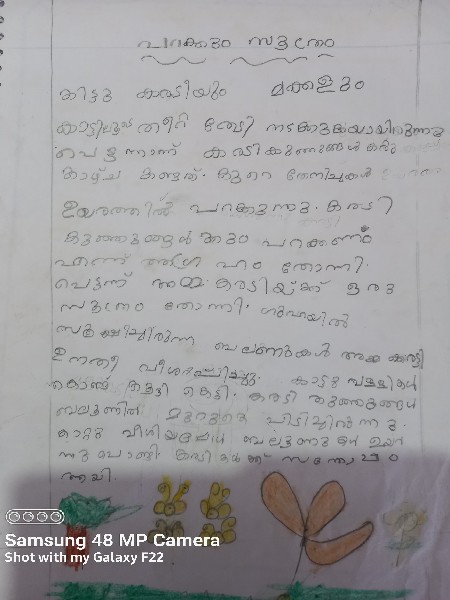 പറക്കും സൂത്രം
കിട്ടു കരടിയും മക്കളും
കാട്ടിലൂടെ തീറ്റ തേടി നടക്കുകയായിരുന്നു
പെട്ടന്നാണ് കരടികുഞ്ഞുങ്ങൾ ഒരു
കാഴ്ച കണ്ടത്. കുറെ തേനീച്ചകൾ
ഉയരത്തിൽ പറക്കുന്നു. കരടി
കുഞ്ഞുങ്ങൾക്കും പറക്കണം
എന്ന് തോന്നി.
പെട്ടന്ന് അമ്മ കരടിയ്ക്ക് ഒരു
സൂത്രം തോന്നി. ഗുഹയിൽ
സൂക്ഷിച്ചിരുന്ന ബലൂണുകൾ അമ്മ കരടി
ഊതി വീർപ്പിച്ചു. കാട്ടു വള്ളികൾ
കൊണ്ട് കൂട്ടി കെട്ടി. കരടി കുഞ്ഞുങ്ങൾ
ബലൂണിൽ മുറുകെ പിടിച്ചിരുന്നു.
കാറ്റു വീശിയപ്പോൾ ബലൂണുകൾ ഉയർ
ന്നു പൊങ്ങി. കരടികൾക്ക് സന്തോഷം
ആയി.
Samsung 48 MP Camera
Shot with my Galaxy F22